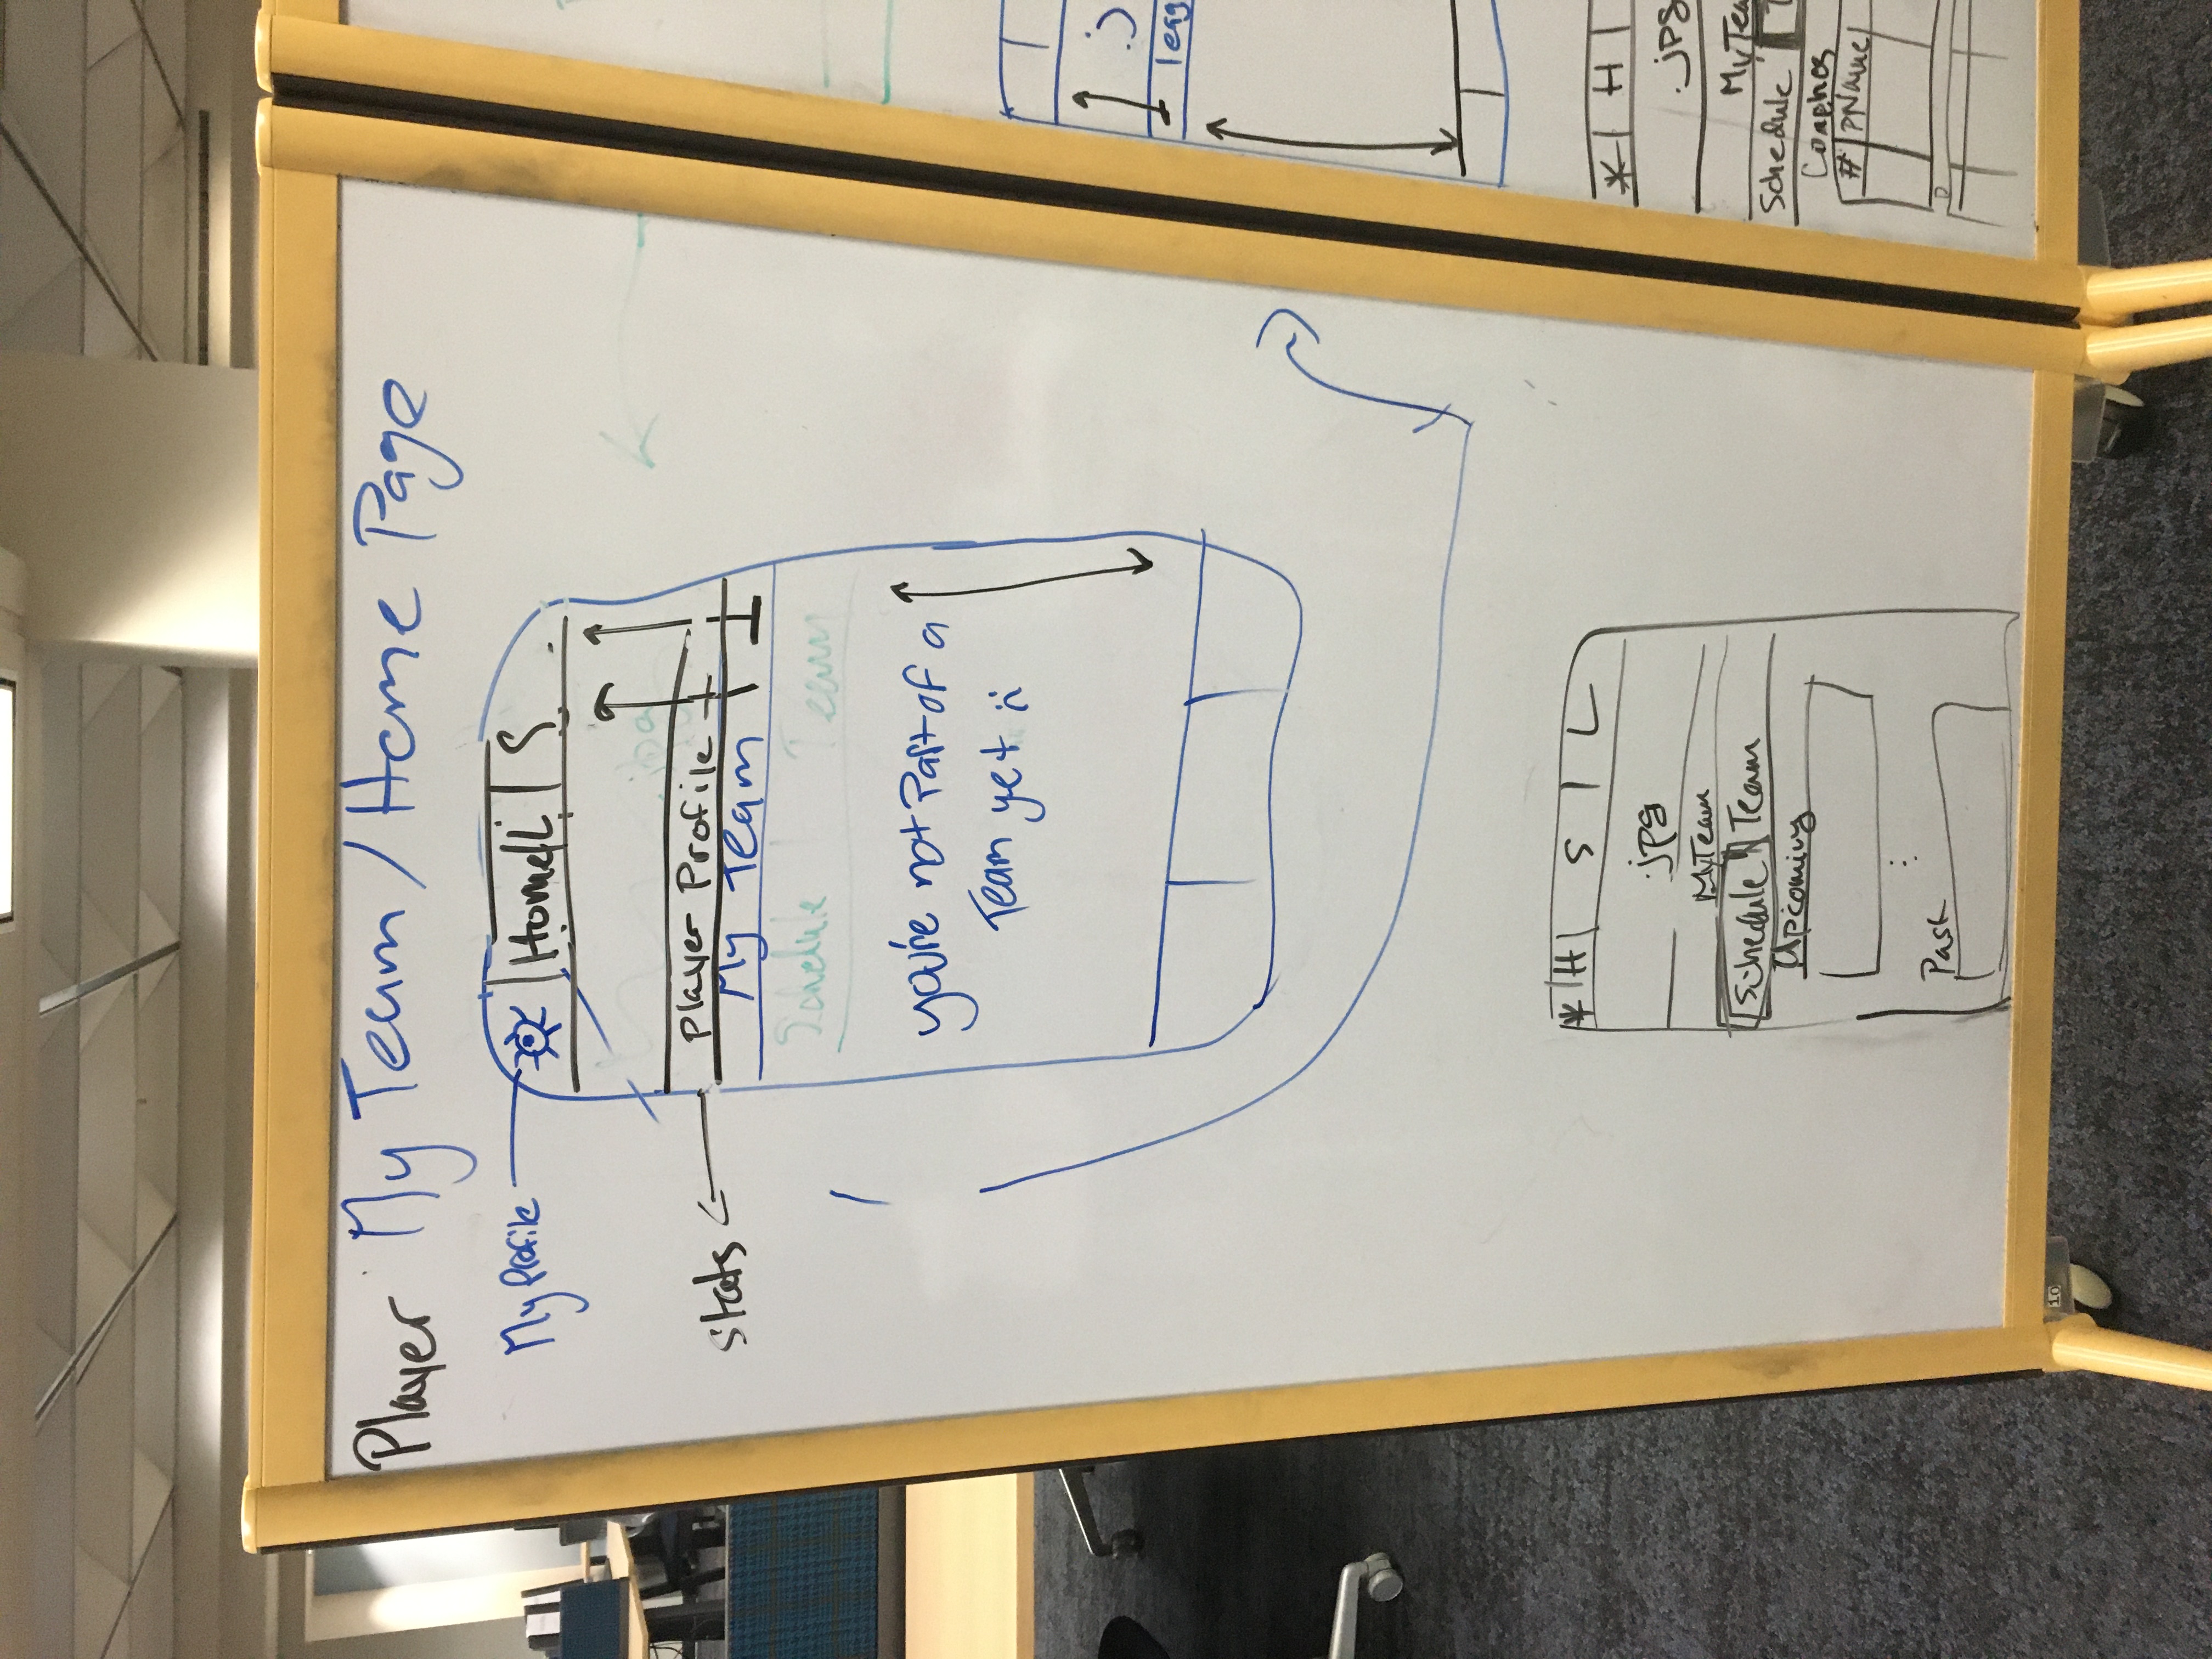 Player My Team / Home Page
My Profile
Home L S
.jpg
Player Profile
stats
My Team
Schedule Team
you're not Part of a
Team yet :(
* H S L
.jpg
MyTeam
Schedule Team
Upcoming
Past
10
.j
leag
* H
.jpg
MyTea
Schedule T
Coaches
# PName
P